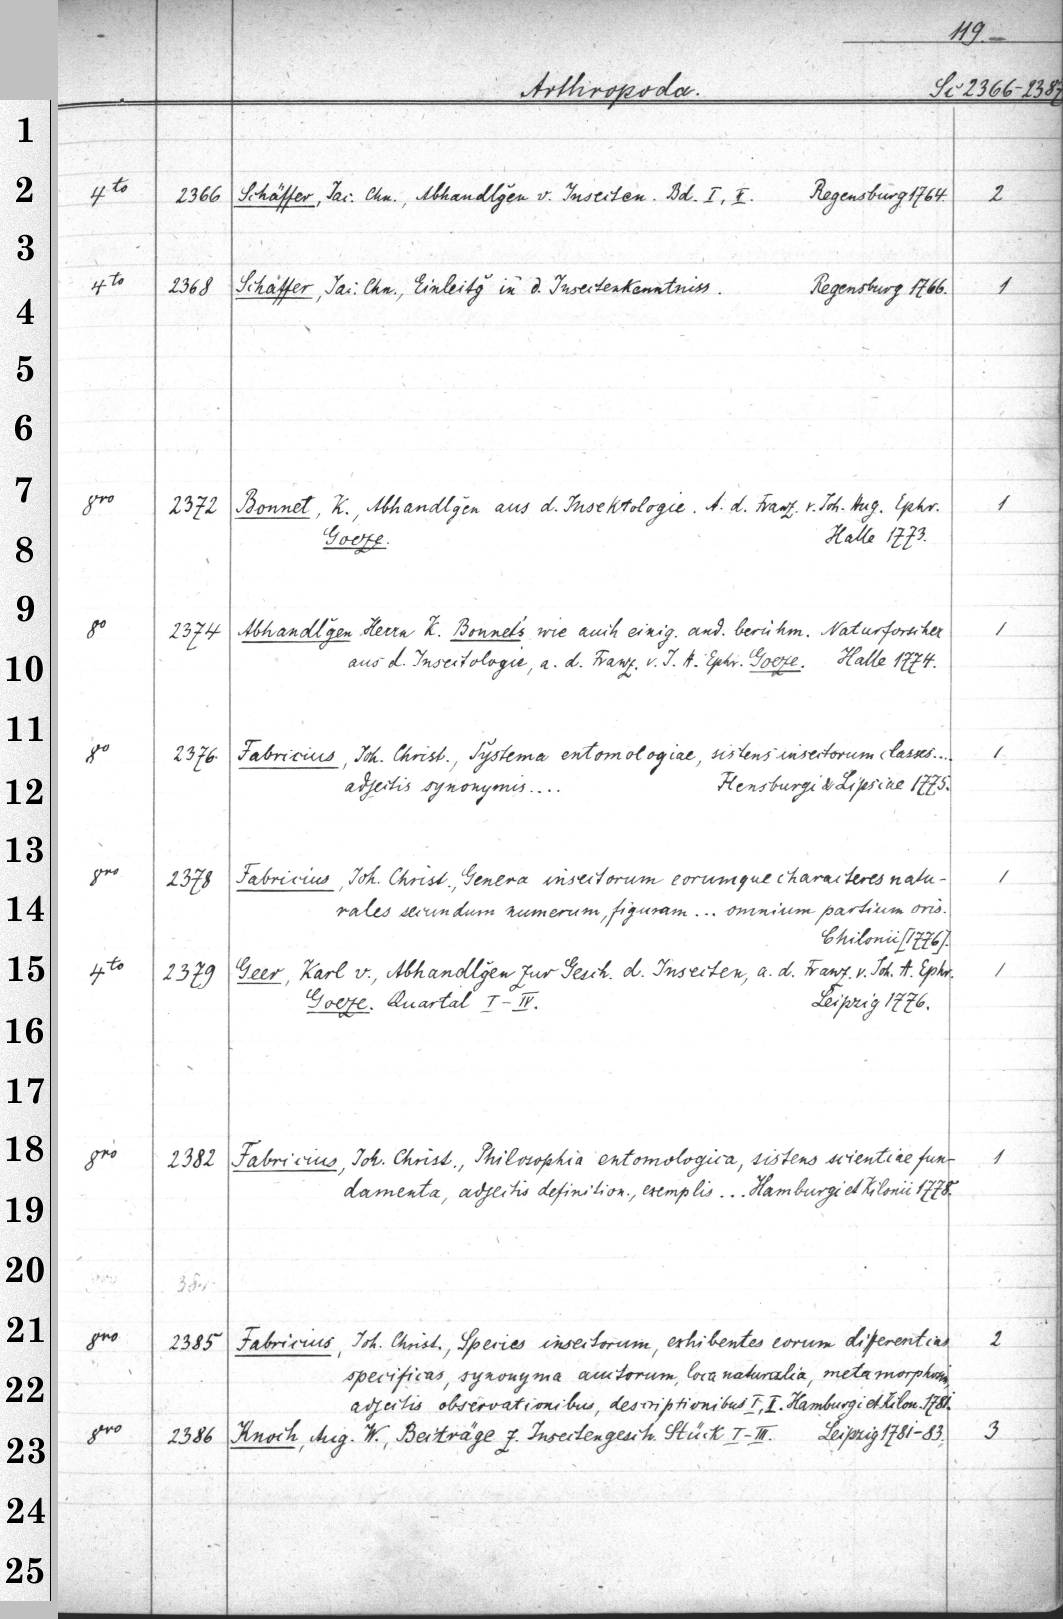 119.
Arthropoda. Sc 2366-2387
1
2 4to 2366 Schäffer, Jac. Chn., Abhandlgen v. Insecten. Bd. I, II. Regensburg 1764. 2
3
4to 2368 Schäffer, Jac. Chn., Einleitg in d. Insectenkenntniss. Regensburg 1766. 1
4
5
6
7 8vo 2372 Bonnet, K., Abhandlgen aus d. Insektologie. A. d. Franz. v. Joh. Aug. Ephr. 1
8 Goeze. Halle 1773.
9 8o 2374 Abhandlgen Herrn K. Bonnets wie auch einig. and. berühm. Naturforscher 1
10 aus d. Insectologie, a. d. Franz. v. J. A. Ephr. Goeze. Halle 1774.
11 8o 2376 Fabricius, Joh. Christ., Systema entomologiae, sistens insectorum classes.... 1
12 adjectis synonymis.... Flensburgi & Lipsiae 1775.
13 8vo 2378 Fabricius, Joh. Christ., Genera insectorum eorumque characteres natu- 1
14 rales secundum numerum, figuram ... omnium partium oris.
Chilonii [1776].
15 4to 2379 Geer, Karl v., Abhandlgen zur Gesch. d. Insecten, a. d. Franz. v. Joh. A. Ephr. 1
16 Goeze. Quartal I-IV. Leipzig 1776.
17
18 8vo 2382 Fabricius, Joh. Christ., Philosophia entomologica, sistens scientiae fun- 1
19 damenta, adjectis definition., exemplis ... Hamburgi et Kilonii 1778.
20
21 8vo 2385 Fabricius, Joh. Christ., Species insectorum, exhibentes eorum differentias 2
22 specificas, synonyma auctorum, loca naturalia, metamorphosin,
adjectis observationibus, descriptionibus I, II. Hamburgi et Kilon. 1781.
23 8vo 2386 Knoch, Aug. W., Beiträge z. Insectengesch. Stück I-III. Leipzig 1781-83. 3
24
25